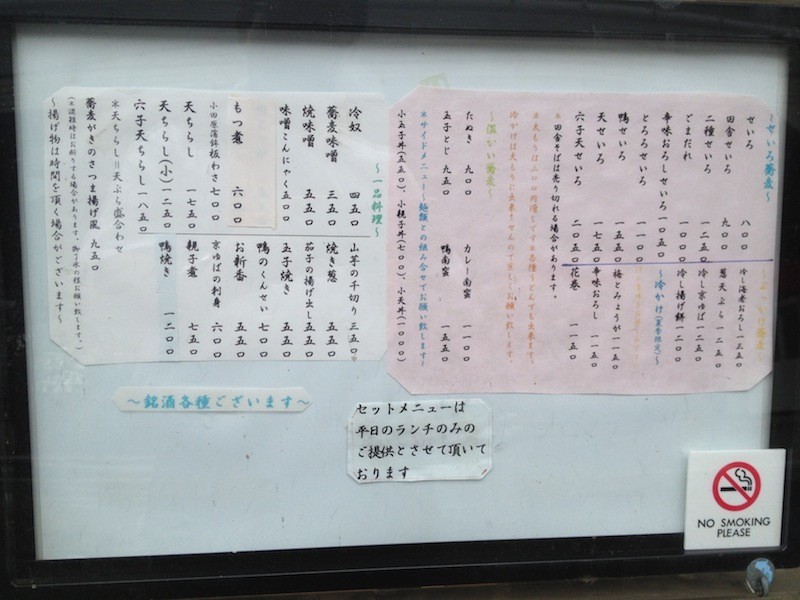 〜せいろ蕎麦〜
せいろ 八〇〇
田舎せいろ 九〇〇
二種せいろ 一二五〇
ごまだれ 一〇〇〇
辛味おろしせいろ 一〇五〇
とろろせいろ 一一〇〇
鴨せいろ 一五五〇
天せいろ 一七五〇
六子天せいろ 二〇五〇
〜ぶっかけ蕎麦〜
冷し海老おろし 一三五〇
葱天ぷら 一二五〇
冷し京ゆば 一二五〇
冷し揚げ餅 一二〇〇
〜冷かけ(夏季限定)〜
梅とみょうが 一一五〇
辛味おろし 一一五〇
花巻 一一五〇
※田舎そばは売り切れる場合があります。
※大もりは二〇〇円増しです※各種とどんでも出来ます。
冷かけは大もりに出来ませんので宜しくお願い致します。
〜温かい蕎麦〜
たぬき 九〇〇
カレー南蛮 一一〇〇
玉子とじ 九五〇
鴨南蛮 一五五〇
※サイドメニュー〜麺類との組み合せでお願い致します〜
小玉子丼(五五〇)、小親子丼(七〇〇)、小天丼(一〇〇〇)
〜一品料理〜
冷奴 四五〇
蕎麦味噌 三五〇
焼味噌 五五〇
味噌こんにゃく 五〇〇
もつ煮 六〇〇
小田原蒲鉾板わさ 七〇〇
天ちらし 一七五〇
天ちらし(小) 一二五〇
六子天ちらし 一八五〇
※天ちらし=天ぷら盛合わせ
蕎麦がきのさつま揚げ風 九五〇
(※混雑時はお断りする場合があります。御了承の程お願い致します。)
〜揚げ物は時間を頂く場合がございます〜
山芋の千切り 三五〇
焼き葱 五五〇
茄子の揚げ出し 五五〇
玉子焼き 五五〇
鴨のくんせい 七〇〇
お新香 五五〇
京ゆばの刺身 六〇〇
親子煮 七五〇
鴨焼き 一二〇〇
〜銘酒各種ございます〜
セットメニューは
平日のランチのみの
ご提供とさせて頂いて
おります
NO SMOKING
PLEASE